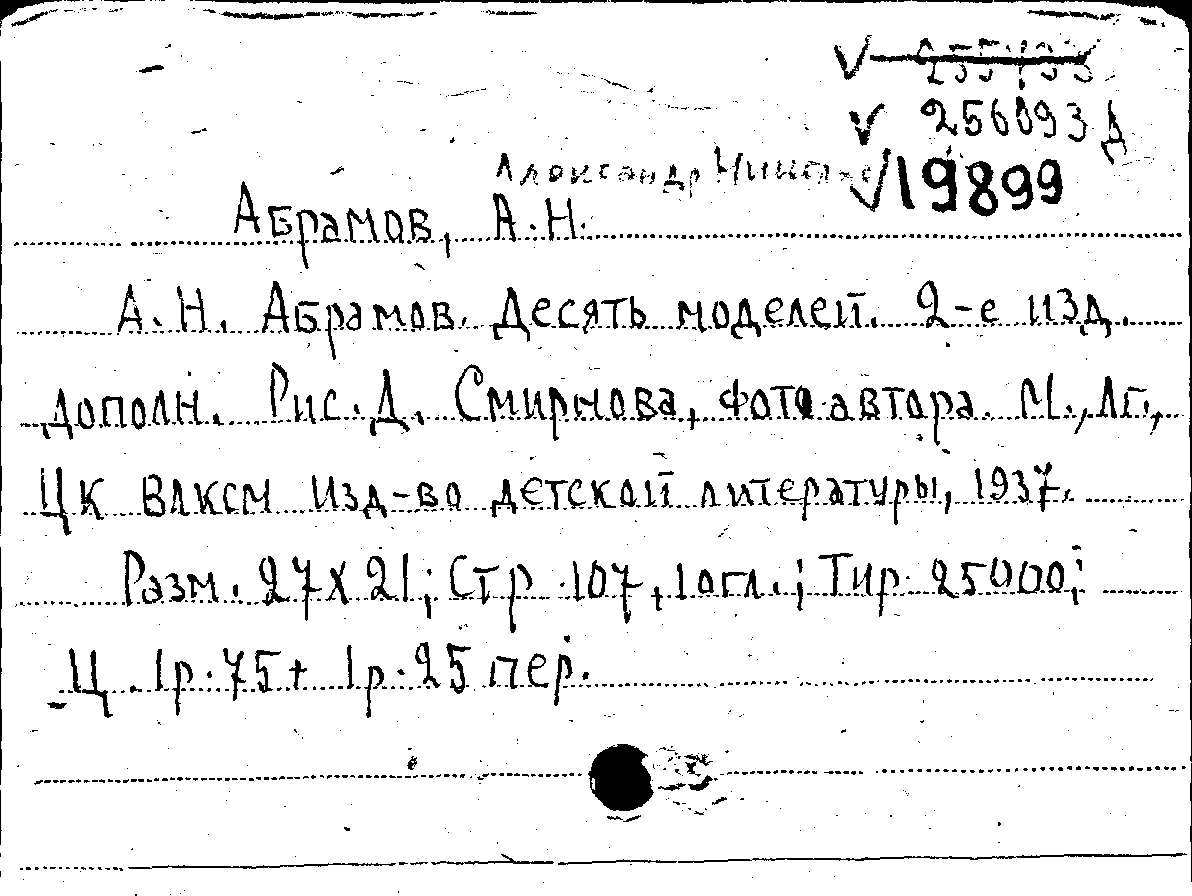 V 255433
V 256093 Д
Александр
V 19899
Абрамов, А.Н.
А.Н. Абрамов. Десять моделей. 2-е изд.
дополн. Рис. Д. Смирнова, фото автора. М., Лг.,
ЦК ВЛКСМ Изд-во детской литературы, 1937.
Разм. 27х21; Стр. 107, 1 огл.; Тир. 25000;
Ц. 1р.75+ 1р.25 пер.